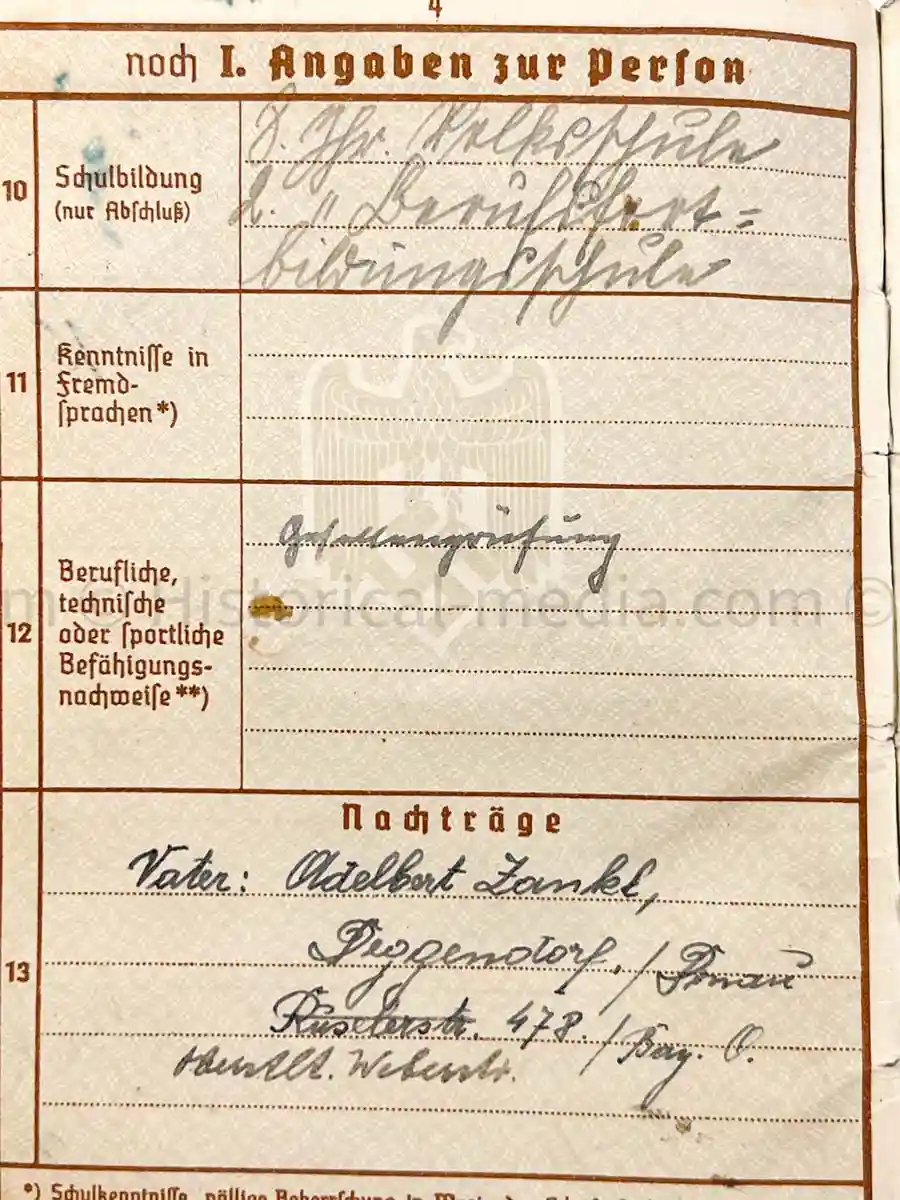 4
noch I. Angaben zur Person
10
Schulbildung
(nur Abschluß)
8. Jhr. Volksschule
2. " Berufsfort=
bildungsschule
11
Kenntnisse in
Fremd-
sprachen*)
12
Berufliche,
technische
oder sportliche
Befähigungs-
nachweise**)
Gesellenprüfung
m © Historical-media.com ©
Nachträge
13
Vater: Adelbert Zankl,
Deggendorf. / Donau
Ruselerstr. 478. / Bay. O.
*) Schulkenntnisse, völlige Beherrschung in